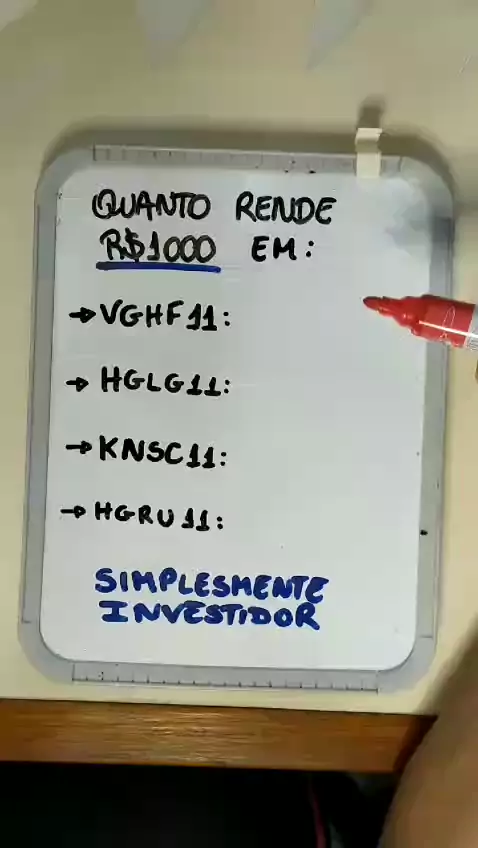 QUANTO RENDE
R$1000 EM:
→VGHF11:
→HGLG11:
→KNSC11:
→HGRU11:
SIMPLESMENTE
INVESTIDOR